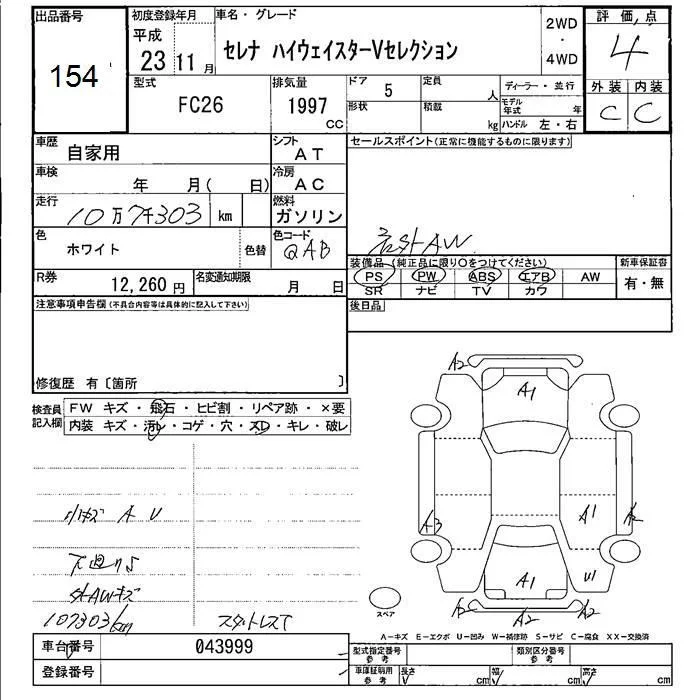 出品番号
154
初度登録年月
平成
23 11月
車名・グレード
セレナ ハイウェイスターVセレクション
2WD
・
4WD
評価点
4
外装 内装
C C
型式
FC26
排気量
1997
CC
ドア
5
定員
人
形状
積載
kg
ディーラー・並行
モデル年式 年
ハンドル 左・右
車歴
自家用
シフト
AT
セールスポイント(正常に機能するものに限ります)
車検
年 月( 日)
冷房
AC
走行
10万7千303 km
燃料
ガソリン
社外AW
色
ホワイト
色替
色コード
QAB
装備品(純正品に限り○をつけてください)
PS PW ABS エアB AW
SR ナビ TV カワ
新車保証書
有・無
R券
12,260円
名変通知期限
月 日
注意事項申告欄(不具合内容等は具体的に記入して下さい)
後日品
修復歴 有〔箇所 〕
検査員記入欄
FW キズ・飛石・ヒビ割・リペア跡・×要
内装 キズ・汚レ・コゲ・穴・スレ・キレ・破レ
A2
A1
A3
A1
A2
A1
U1
A2
A2
A2
小キズ A U
下廻りS
社外AWキズ
107303km
スタットレスT
スペア
A-キズ E-エクボ U-凹み W-補修跡 S-サビ C-腐食 XX-交換済
車台番号
043999
登録番号
型式指定番号
参考
類別区分番号
参考
車庫証明用
参考
長さ cm 幅 cm 高さ cm